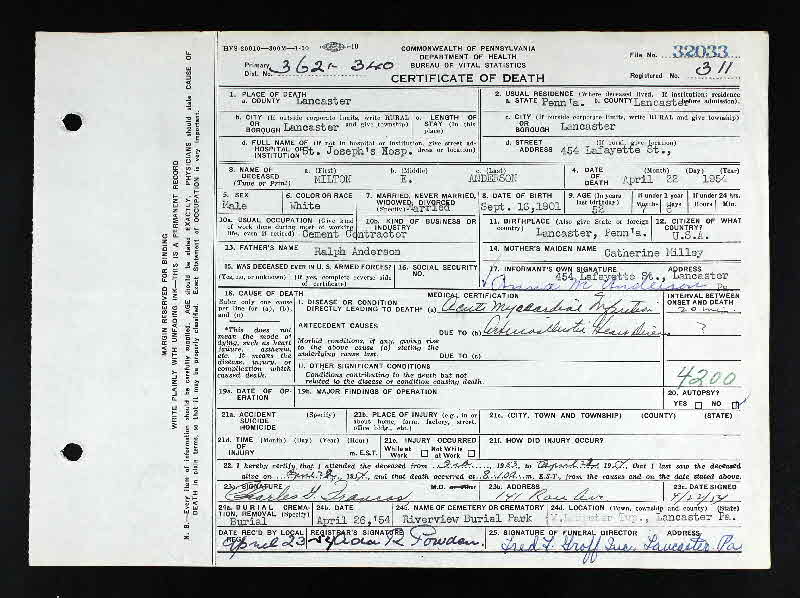 HVS-20010-300M-1-10
COMMONWEALTH OF PENNSYLVANIA
DEPARTMENT OF HEALTH
BUREAU OF VITAL STATISTICS
CERTIFICATE OF DEATH
File No. 32033
Primary Dist. No. 362 - 340
Registered No. 311
1. PLACE OF DEATH
a. COUNTY Lancaster
2. USUAL RESIDENCE (Where deceased lived. If institution: residence before admission).
a. STATE Penn'a. b. COUNTY Lancaster
b. CITY (If outside corporate limits, write RURAL and give township) OR BOROUGH Lancaster
c. LENGTH OF STAY (in this place)
c. CITY (If outside corporate limits, write RURAL and give township) OR BOROUGH Lancaster
d. FULL NAME OF (If not in hospital or institution, give street address or location) HOSPITAL OR INSTITUTION St. Joseph's Hosp.
d. STREET ADDRESS (If rural, give location) 454 Lafayette St.,
3. NAME OF DECEASED (Type or Print)
a. (First) MILTON b. (Middle) E. c. (Last) ANDERSON
4. DATE OF DEATH (Month) (Day) (Year) April 22 1954
5. SEX Male
6. COLOR OR RACE White
7. MARRIED, NEVER MARRIED, WIDOWED, DIVORCED (Specify) Married
8. DATE OF BIRTH Sept. 16, 1901
9. AGE (In years last birthday) 52
If under 1 year Months Days
If under 24 hrs. Hours Min.
10a. USUAL OCCUPATION (Give kind of work done during most of working life, even if retired) Cement Contractor
10b. KIND OF BUSINESS OR INDUSTRY
11. BIRTHPLACE (Also give State or foreign country) Lancaster, Penn'a.
12. CITIZEN OF WHAT COUNTRY? U.S.A.
13. FATHER'S NAME Ralph Anderson
14. MOTHER'S MAIDEN NAME Catherine Milley
15. WAS DECEASED EVER IN U. S. ARMED FORCES? (Yes, no, or unknown) (If yes, complete reverse side of certificate)
16. SOCIAL SECURITY NO.
17. INFORMANT'S OWN SIGNATURE ADDRESS
454 Lafayette St., Lancaster
Anna M Anderson Pa
18. CAUSE OF DEATH
Enter only one cause per line for (a), (b), and (c)
MEDICAL CERTIFICATION
INTERVAL BETWEEN ONSET AND DEATH
I. DISEASE OR CONDITION DIRECTLY LEADING TO DEATH* (a) Acute Myocardial Infarction 20 min.
*This does not mean the mode of dying, such as heart failure, asthenia, etc. It means the disease, injury, or complication which caused death.
ANTECEDENT CAUSES
Morbid conditions, if any, giving rise to the above cause (a) stating the underlying cause last.
DUE TO (b) Arteriosclerotic Heart Disease ?
DUE TO (c)
II. OTHER SIGNIFICANT CONDITIONS
Conditions contributing to the death but not related to the disease or condition causing death.
4200
19a. DATE OF OPERATION
19b. MAJOR FINDINGS OF OPERATION
20. AUTOPSY?
YES NO
21a. ACCIDENT SUICIDE HOMICIDE (Specify)
21b. PLACE OF INJURY (e.g., in or about home, farm, factory, street, office bldg., etc.)
21c. (CITY, TOWN AND TOWNSHIP) (COUNTY) (STATE)
21d. TIME OF INJURY (Month) (Day) (Year) (Hour) m. E.S.T.
21e. INJURY OCCURRED While at Work Not While at Work
21f. HOW DID INJURY OCCUR?
22. I hereby certify that I attended the deceased from 1953, to April 1954, that I last saw the deceased
alive on April 1954, and that death occurred at m. E.S.T., from the causes and on the date stated above.
23a. SIGNATURE Charles M.D.
23b. ADDRESS 141
23c. DATE SIGNED 4/22/54
24a. BURIAL, CREMATION, REMOVAL (Specify) Burial
24b. DATE April 26,'54
24c. NAME OF CEMETERY OR CREMATORY Riverview Burial Park
24d. LOCATION (Town, township and county) (State) Twp., Lancaster Pa.
DATE REC'D BY LOCAL REG. April 23
REGISTRAR'S SIGNATURE
25. SIGNATURE OF FUNERAL DIRECTOR ADDRESS
Fred F. Groff Inc. Lancaster Pa
MARGIN RESERVED FOR BINDING
WRITE PLAINLY WITH UNFADING INK—THIS IS A PERMANENT RECORD
N. B.—Every item of information should be carefully supplied. AGE should be stated EXACTLY. PHYSICIANS should state CAUSE OF
DEATH in plain terms, so that it may be properly classified. Exact Statement of OCCUPATION is very important.